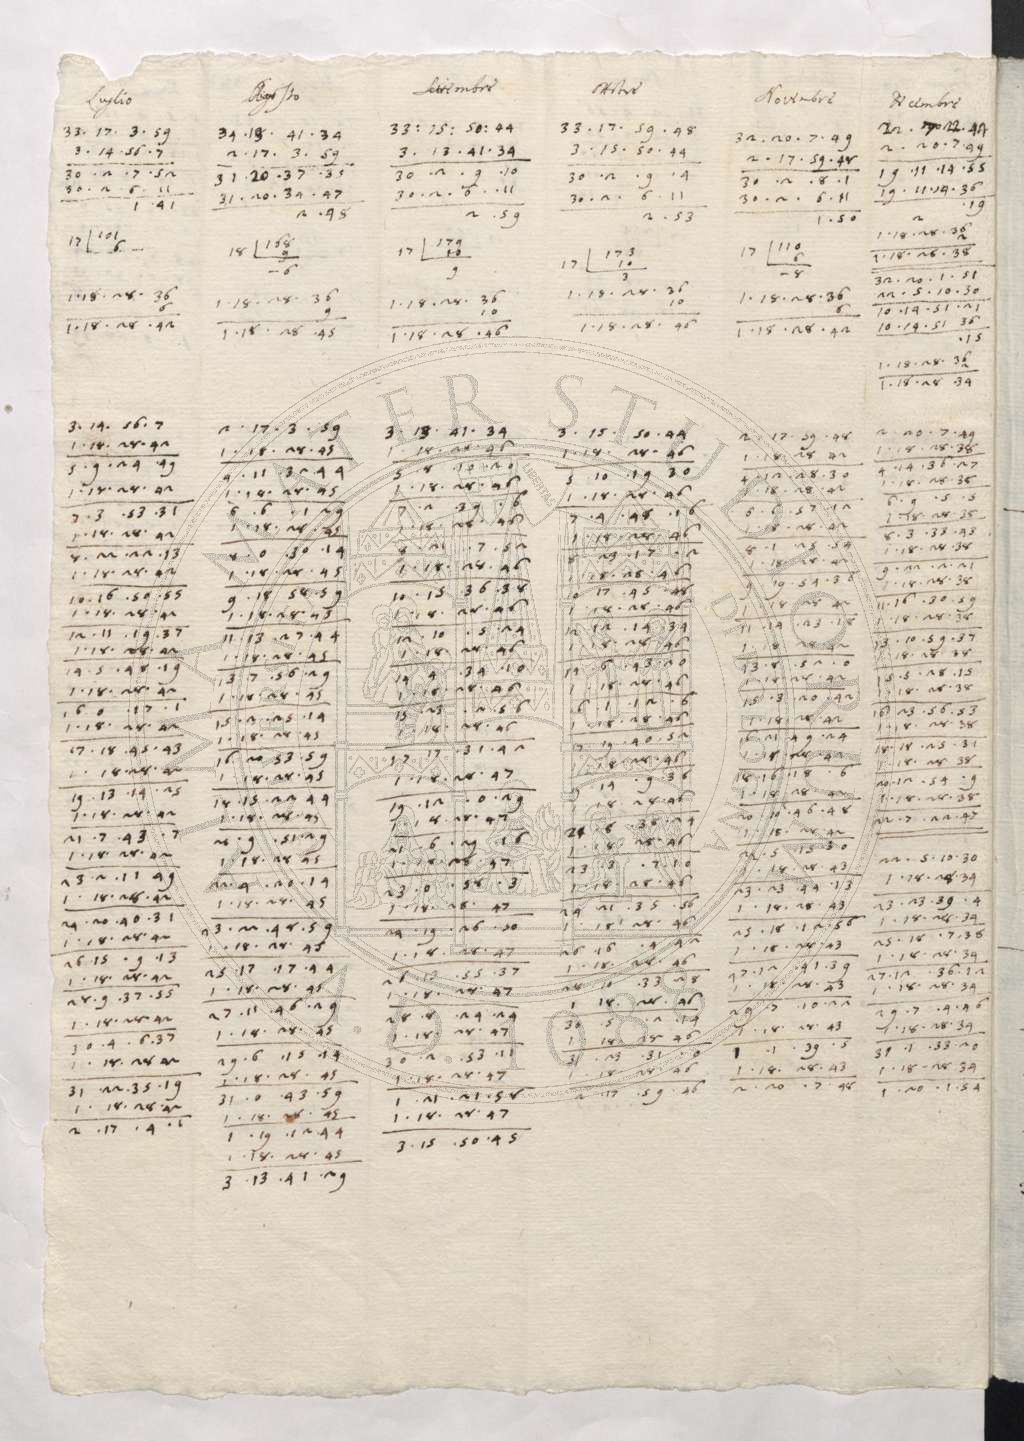 Luglio
33.17.3.59
3.14.56.7
30.2.7.52
30.2.6.11
1.41
17 101
6
1.18.28.36
6
1.18.28.42
3.14.56.7
1.18.28.42
5.9.24.49
1.18.28.42
7.3.53.31
1.18.28.42
8.22.22.13
1.18.28.42
10.16.50.55
1.18.28.42
12.11.19.37
1.18.28.42
14.5.48.19
1.18.28.42
16.0.17.1
1.18.28.42
17.18.45.43
1.18.28.42
19.13.14.25
1.18.28.42
21.7.43.7
1.18.28.42
23.2.11.49
1.18.28.42
24.20.40.31
1.18.28.42
26.15.9.13
1.18.28.42
28.9.37.55
1.18.28.42
30.4.6.37
1.18.28.42
31.22.35.19
1.18.28.42
2.17.4
Agosto
34.13.41.34
2.17.3.59
31.20.37.35
31.20.34.47
2.48
18 168
9
-6
1.18.28.36
9
1.18.28.45
2.17.3.59
1.18.28.45
4.11.32.44
1.18.28.45
6.6.1.29
1.18.28.45
8.0.30.14
1.18.28.45
9.18.58.59
1.18.28.45
11.13.27.44
1.18.28.45
13.7.56.29
1.18.28.45
15.2.25.14
1.18.28.45
16.20.53.59
1.18.28.45
18.15.22.44
1.18.28.45
20.9.51.29
1.18.28.45
22.4.20.14
1.18.28.45
23.22.48.59
1.18.28.45
25.17.17.44
1.18.28.45
27.11.46.29
1.18.28.45
29.6.15.14
1.18.28.45
31.0.43.59
1.18.28.45
1.19.12.44
1.18.28.45
3.13.41.29
Settembre
33:15:50:44
3.13.41.34
30.2.9.10
30.2.6.11
2.59
17 179
10
9
1.18.28.36
10
1.18.28.46
3.13.41.34
1.18.28.46
5.8.10.20
1.18.28.46
7.2.39.6
1.18.28.46
8.21.7.52
1.18.28.46
10.15.36.38
1.18.28.46
12.10.5.24
1.18.28.46
14.4.34.10
1.18.28.46
15.23.2.56
1.18.28.46
17.17.31.42
1.18.28.47
19.12.0.29
1.18.28.47
21.6.29.16
1.18.28.47
23.0.58.3
1.18.28.47
24.19.26.50
1.18.28.47
26.13.55.37
1.18.28.47
28.8.24.24
1.18.28.47
30.2.53.11
1.18.28.47
1.21.21.58
1.18.28.47
3.15.50.45
33.17.59.48
3.15.50.44
30.2.9.4
30.2.6.11
2.53
17 173
10
3
1.18.28.36
10
1.18.28.46
3.15.50.44
1.18.28.46
5.10.19.30
1.18.28.46
7.4.48.16
1.18.28.46
8.23.17.2
1.18.28.46
10.17.45.48
1.18.28.46
12.12.14.34
1.18.28.46
14.6.43.20
1.18.28.46
16.1.12.6
1.18.28.46
17.19.40.52
1.18.28.46
19.14.9.38
1.18.28.46
21.8.38.24
1.18.28.46
23.3.7.10
1.18.28.46
24.21.35.56
1.18.28.46
26.16.4.42
1.18.28.46
28.10.33.28
1.18.28.46
30.5.2.14
1.18.28.46
31.23.31.0
1.18.28.46
2.17.59.46
Novembre
32.20.7.49
2.17.59.48
30.2.8.1
30.2.6.11
1.50
17 110
6
-8
1.18.28.36
6
1.18.28.42
2.17.59.48
1.18.28.42
4.12.28.30
1.18.28.42
6.6.57.12
1.18.28.42
8.1.25.54
1.18.28.42
9.19.54.36
1.18.28.42
11.14.23.18
1.18.28.42
13.8.52.0
1.18.28.42
15.3.20.42
1.18.28.42
16.21.49.24
1.18.28.42
18.16.18.6
1.18.28.42
20.10.46.48
1.18.28.42
22.5.15.30
1.18.28.43
23.23.44.13
1.18.28.43
25.18.12.56
1.18.28.43
27.12.41.39
1.18.28.43
29.7.10.22
1.18.28.43
1.1.39.5
1.18.28.43
2.20.7.48
Decembre
2.20.7.49
19.11.14.55
19.11.14.36
.19
2
1.18.28.36
2
1.18.28.38
32.20.1.51
22.5.10.30
10.14.51.21
10.14.51.36
.15
1.18.28.36
2
1.18.28.34
2.20.7.49
1.18.28.38
4.14.36.27
1.18.28.38
6.9.5.5
1.18.28.38
8.3.33.43
1.18.28.38
9.22.2.21
1.18.28.38
11.16.30.59
1.18.28.38
13.10.59.37
1.18.28.38
15.5.28.15
1.18.28.38
16.23.56.53
1.18.28.38
18.18.25.31
1.18.28.38
20.12.54.9
1.18.28.38
22.7.22.47
22.5.10.30
1.18.28.34
23.23.39.4
1.18.28.34
25.18.7.38
1.18.28.34
27.12.36.12
1.18.28.34
29.7.4.46
1.18.28.34
31.1.33.20
1.18.28.34
1.20.1.54
ALMA MATER STUDIORUM
A.D. 1088